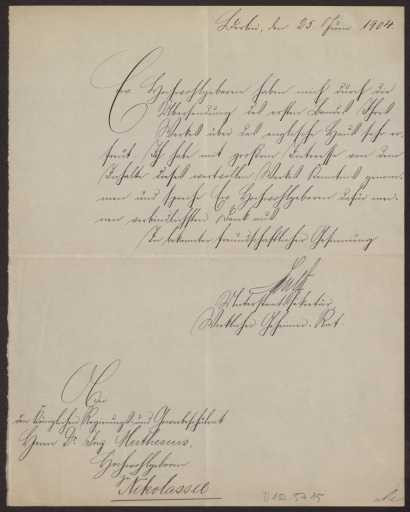 Berlin, den 25. Juni 1904.
Ew. Hochwohlgeboren haben mich durch die
Übersendung des ersten Bandes Ihres
Werkes über das englische Haus sehr er-
freut. Ich habe mit großem Interesse von dem
Inhalte dieses wertvollen Werkes Kenntnis genom-
men und spreche Ew. Hochwohlgeboren dafür mei-
nen verbindlichsten Dank aus.
In bekannter freundschaftlicher Gesinnung
Unterstaatssekretär
Wirklicher Geheimer Rat.
An
den Königlichen Regierungs- und Gewerbeschulrat
Herrn Dr. Ing. Muthesius,
Hochwohlgeboren
Nikolassee